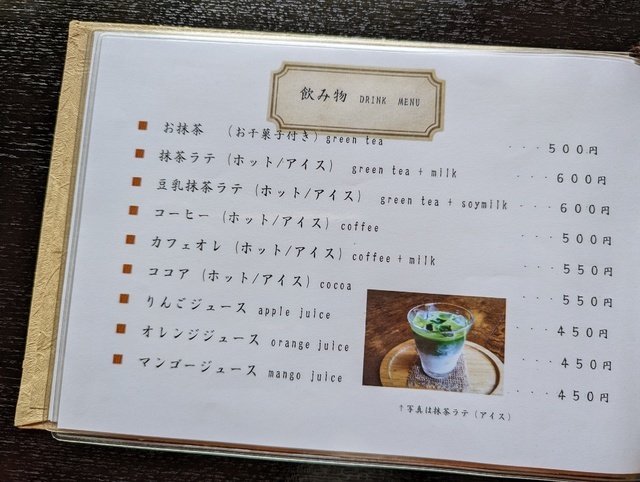 飲み物 DRINK MENU
■ お抹茶 （お干菓子付き） green tea ・・・５００円
■ 抹茶ラテ （ホット/アイス） green tea + milk ・・・６００円
■ 豆乳抹茶ラテ （ホット/アイス） green tea + soymilk ・・・６００円
■ コーヒー （ホット/アイス） coffee ・・・５００円
■ カフェオレ （ホット/アイス） coffee + milk ・・・５５０円
■ ココア （ホット/アイス） cocoa ・・・５５０円
■ りんごジュース apple juice ・・・４５０円
■ オレンジジュース orange juice ・・・４５０円
■ マンゴージュース mango juice ・・・４５０円
↑写真は抹茶ラテ（アイス）